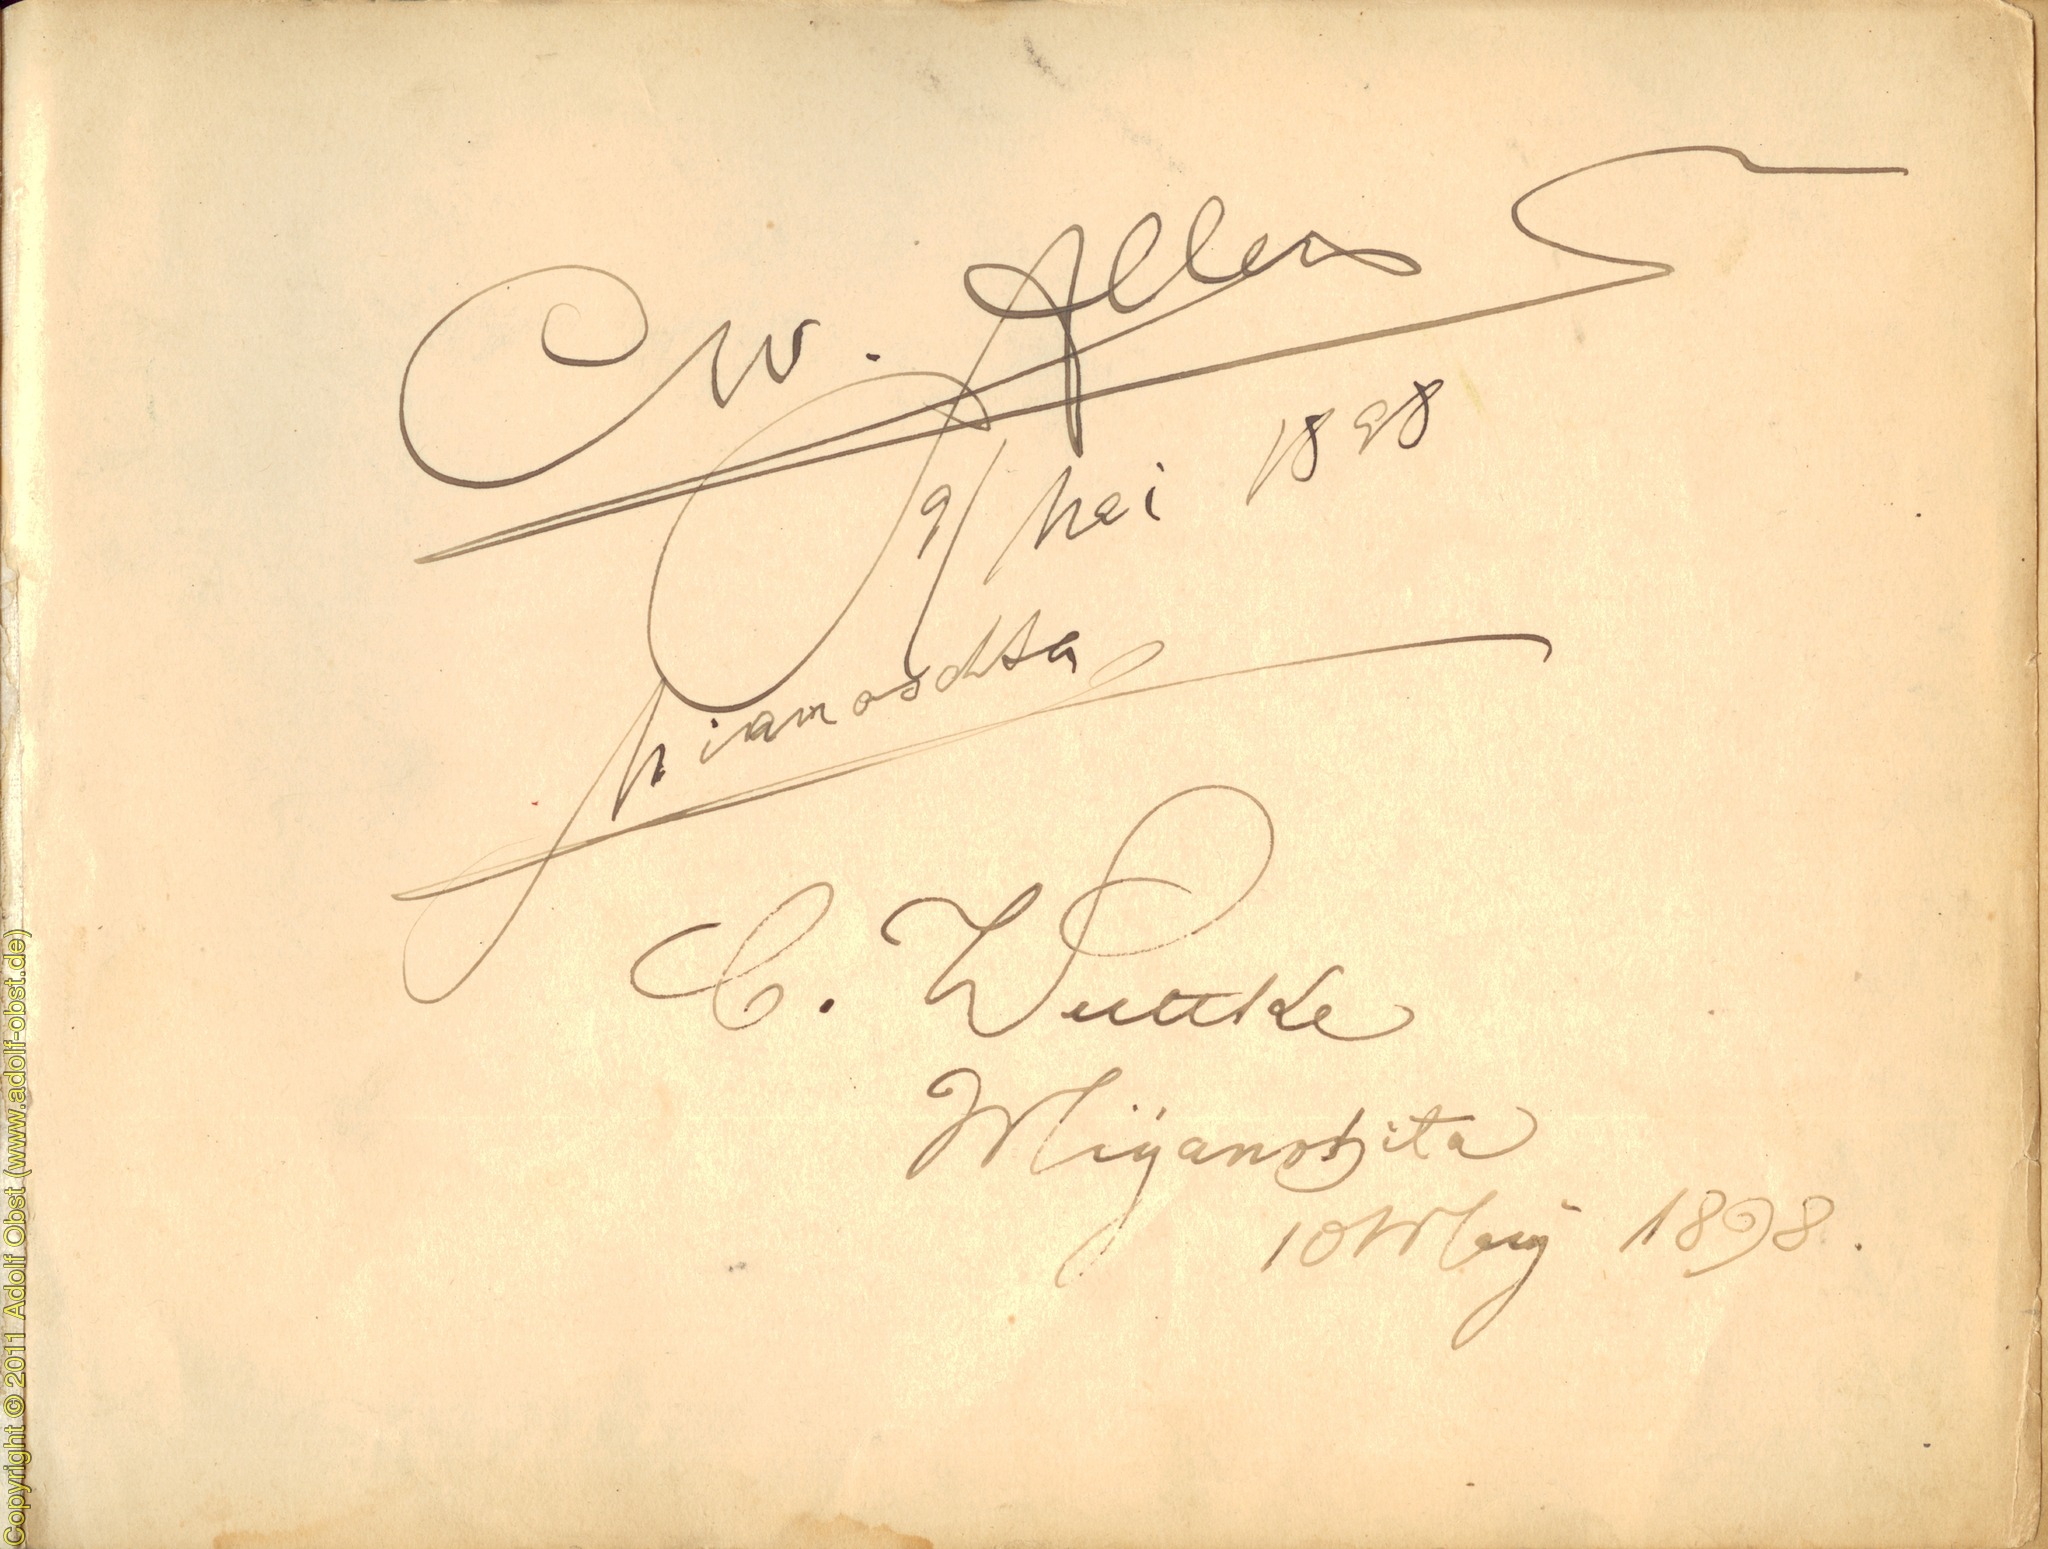 CW. Allers
9/ Mai 1898
Miamoschta
C. Wuttke
Miÿanoshita
10 Maÿ 1898.
Copyright © 2011 Adolf Obst (www.adolf-obst.de)